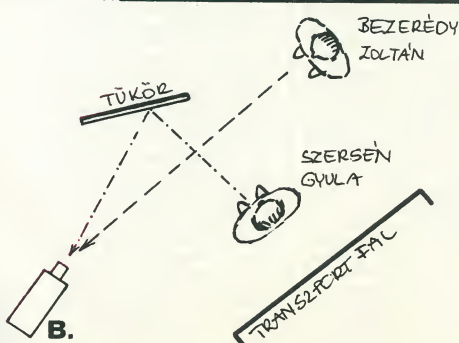 BEZERÉDY
ZOLTÁN
TÜKÖR
SZERSÉN
GYULA
TRANSZPORT FAL
B.